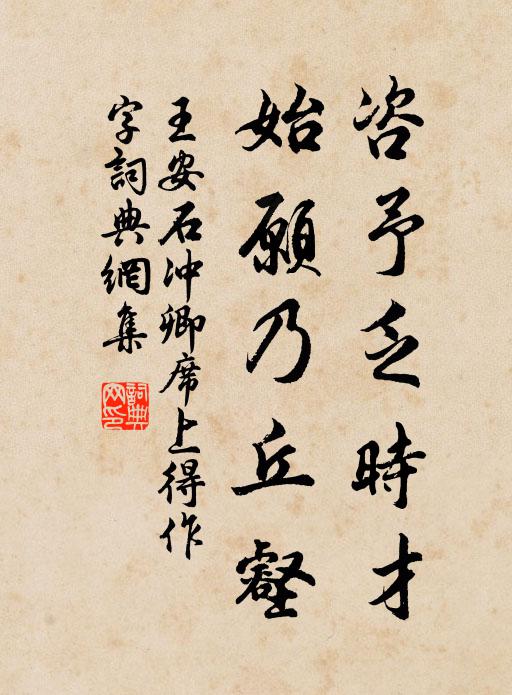 咨予乏時才
始願乃丘壑
王安石冲卿席上得作
字詞典網集
詞典網印